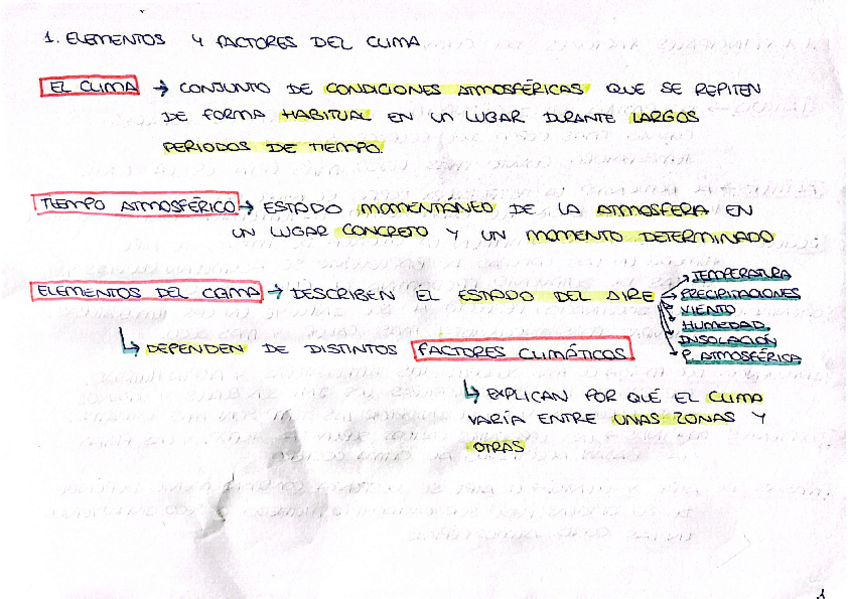 1. ELEMENTOS Y FACTORES DEL CLIMA
EL CLIMA → CONJUNTO DE CONDICIONES ATMOSFÉRICAS QUE SE REPITEN
DE FORMA HABITUAL EN UN LUGAR DURANTE LARGOS
PERIODOS DE TIEMPO.
TIEMPO ATMOSFÉRICO → ESTADO MOMENTÁNEO DE LA ATMOSFERA EN
UN LUGAR CONCRETO Y UN MOMENTO DETERMINADO
ELEMENTOS DEL CLIMA → DESCRIBEN EL ESTADO DEL AIRE
TEMPERATURA
PRECIPITACIONES
VIENTO
HUMEDAD.
INSOLACIÓN
P. ATMOSFÉRICA
↳ DEPENDEN DE DISTINTOS FACTORES CLIMÁTICOS
↳ EXPLICAN POR QUÉ EL CLIMA
VARÍA ENTRE UNAS ZONAS Y
OTRAS
1